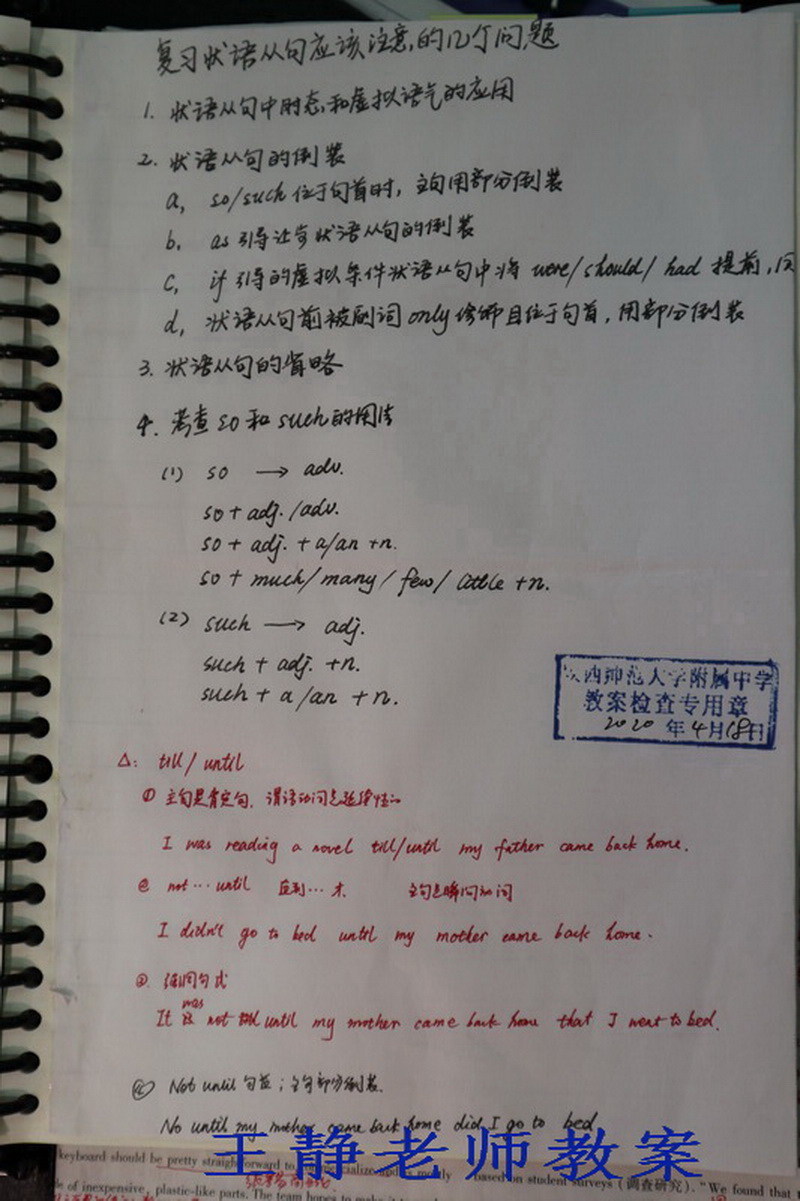 复习状语从句应该注意的几个问题
1. 状语从句中时态和虚拟语气的应用
2. 状语从句的倒装
a, so/such 位于句首时，主句用部分倒装
b, as 引导让步状语从句的倒装
c, if 引导的虚拟条件状语从句中将 were/should/had 提前,
d, 状语从句前被副词 only 修饰且位于句首，用部分倒装
3. 状语从句的省略
4. 考查 so 和 such 的用法
(1) so → adv.
so + adj./adv.
so + adj. + a/an + n.
so + much/many/few/little + n.
(2) such → adj.
such + adj. + n.
such + a/an + n.
陕西师范大学附属中学
教案检查专用章
2020 年 4 月 18 日
△: till/until
① 主句是肯定句, 谓语动词是延续性的
I was reading a novel till/until my father came back home.
② not…until 直到…才 主句是瞬间动词
I didn't go to bed until my mother came back home.
③. 强调句式
was
It is not till until my mother came back home that I went to bed.
④ Not until 句首；主句部分倒装.
No until my mother came back home did I go to bed
王静老师教案
keyboard should be pretty straightforward to
mostly based on student surveys (调查研究). "We found that
le of inexpensive, plastic-like parts. The team hopes to make it